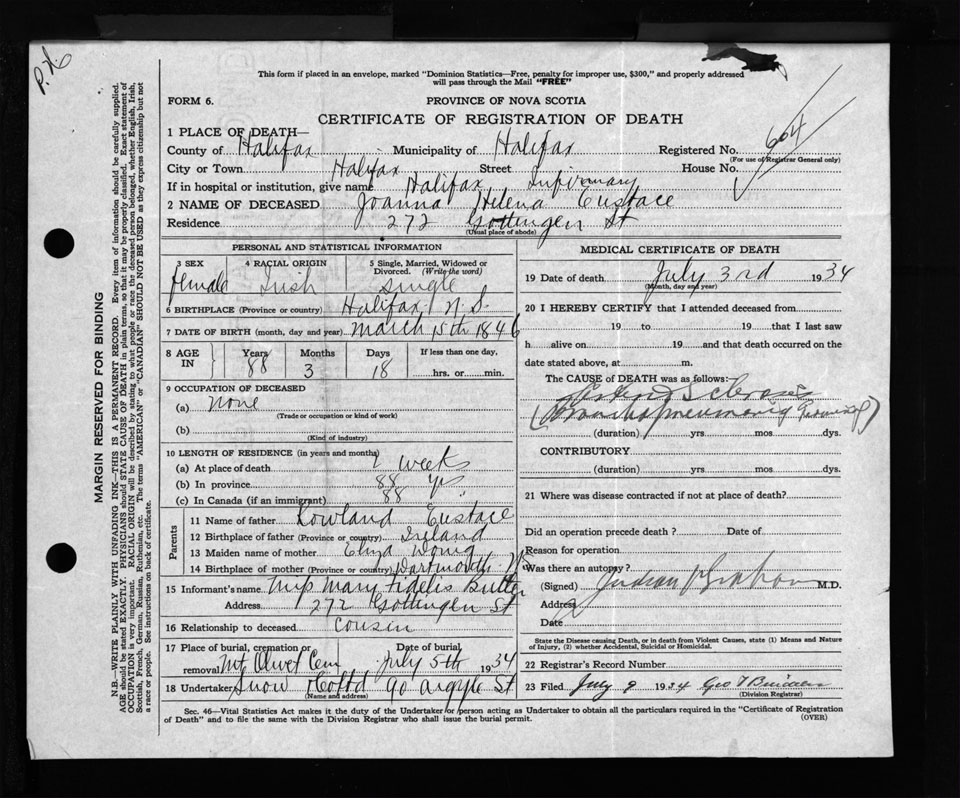 P.H.
This form if placed in an envelope, marked "Dominion Statistics—Free, penalty for improper use, $300," and properly addressed
will pass through the Mail "FREE"
FORM 6.
PROVINCE OF NOVA SCOTIA
CERTIFICATE OF REGISTRATION OF DEATH
1 PLACE OF DEATH—
County of Halifax Municipality of Halifax Registered No. 664
(For use of Registrar General only)
City or Town Halifax Street House No.
If in hospital or institution, give name Halifax Infirmary
2 NAME OF DECEASED Joanna Helena Eustace
Residence 272 Gottingen St
(Usual place of abode)
PERSONAL AND STATISTICAL INFORMATION
3 SEX 4 RACIAL ORIGIN 5 Single, Married, Widowed or
Divorced. (Write the word)
female Irish single
6 BIRTHPLACE (Province or country) Halifax N.S.
7 DATE OF BIRTH (month, day and year) March 15th 1846
8 AGE IN Years Months Days If less than one day,
88 3 18 hrs. or min.
9 OCCUPATION OF DECEASED
(a) none
(Trade or occupation or kind of work)
(b)
(Kind of industry)
10 LENGTH OF RESIDENCE (in years and months)
(a) At place of death weeks
(b) In province 88 yrs.
(c) In Canada (if an immigrant) 88
Parents
11 Name of father Rowland Eustace
12 Birthplace of father (Province or country) Ireland
13 Maiden name of mother Eliza
14 Birthplace of mother (Province or country) Dartmouth NS
15 Informant's name Mary Fidelis Butler
Address 272 Gottingen St
16 Relationship to deceased cousin
17 Place of burial, cremation or Date of burial
removal Mt Olivet Cem July 5th 1934
18 Undertaker Snow & Co Ltd 90 Argyle St
(Name and address)
MEDICAL CERTIFICATE OF DEATH
19 Date of death July 3rd 1934
(Month, day and year)
20 I HEREBY CERTIFY that I attended deceased from
19 to 19 that I last saw
h alive on 19 and that death occurred on the
date stated above, at m.
The CAUSE of DEATH was as follows:
Arterio Sclerosis
(Bronchopneumonia terminal)
(duration) yrs mos dys.
CONTRIBUTORY
(duration) yrs mos dys.
21 Where was disease contracted if not at place of death?
Did an operation precede death? Date of
Reason for operation
Was there an autopsy?
(Signed) Graham M.D.
Address
Date
State the Disease causing Death, or in death from Violent Causes, state (1) Means and Nature
of Injury, (2) whether Accidental, Suicidal or Homicidal.
22 Registrar's Record Number
23 Filed July 9 1934 Geo
(Division Registrar)
Sec. 46—Vital Statistics Act makes it the duty of the Undertaker or person acting as Undertaker to obtain all the particulars required in the "Certificate of Registration
of Death" and to file the same with the Division Registrar who shall issue the burial permit.
(OVER)
MARGIN RESERVED FOR BINDING
N.B.—WRITE PLAINLY WITH UNFADING INK—THIS IS A PERMANENT RECORD. Every item of information should be carefully supplied.
AGE should be stated EXACTLY. PHYSICIANS should STATE CAUSE OF DEATH in plain terms, so that it may be properly classified. Exact statement of
OCCUPATION is very important. RACIAL ORIGIN will be described by stating to what people or race the deceased person belonged, whether English, Irish,
Scottish, French, German, Russian, Ruthenian, etc. The terms "AMERICAN" or "CANADIAN" SHOULD NOT BE USED as they express citizenship but not
a race or people. See instructions on back of certificate.